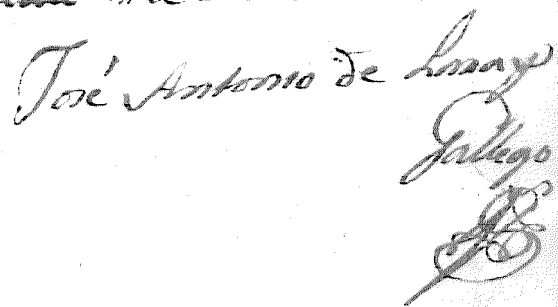 José Antonio de Lomas
Gallego